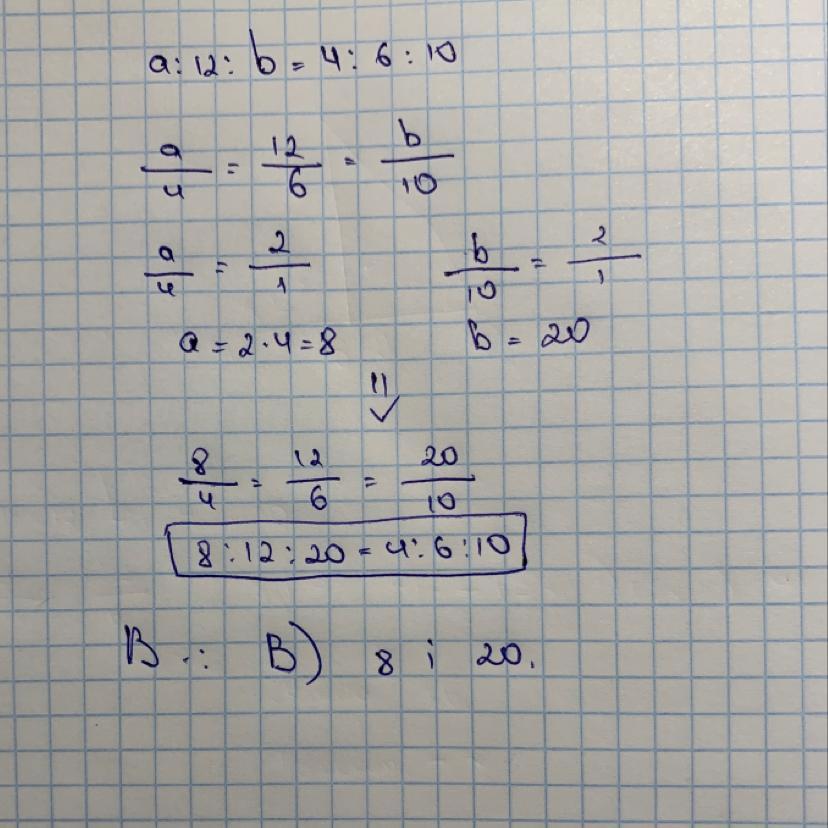 a : 12 : b = 4 : 6 : 10
a/4 = 12/6 = b/10
a/4 = 2/1 b/10 = 2/1
a = 2 · 4 = 8 b = 20
⇓
8/4 = 12/6 = 20/10
8 : 12 : 20 = 4 : 6 : 10
В .: В) 8 i 20.